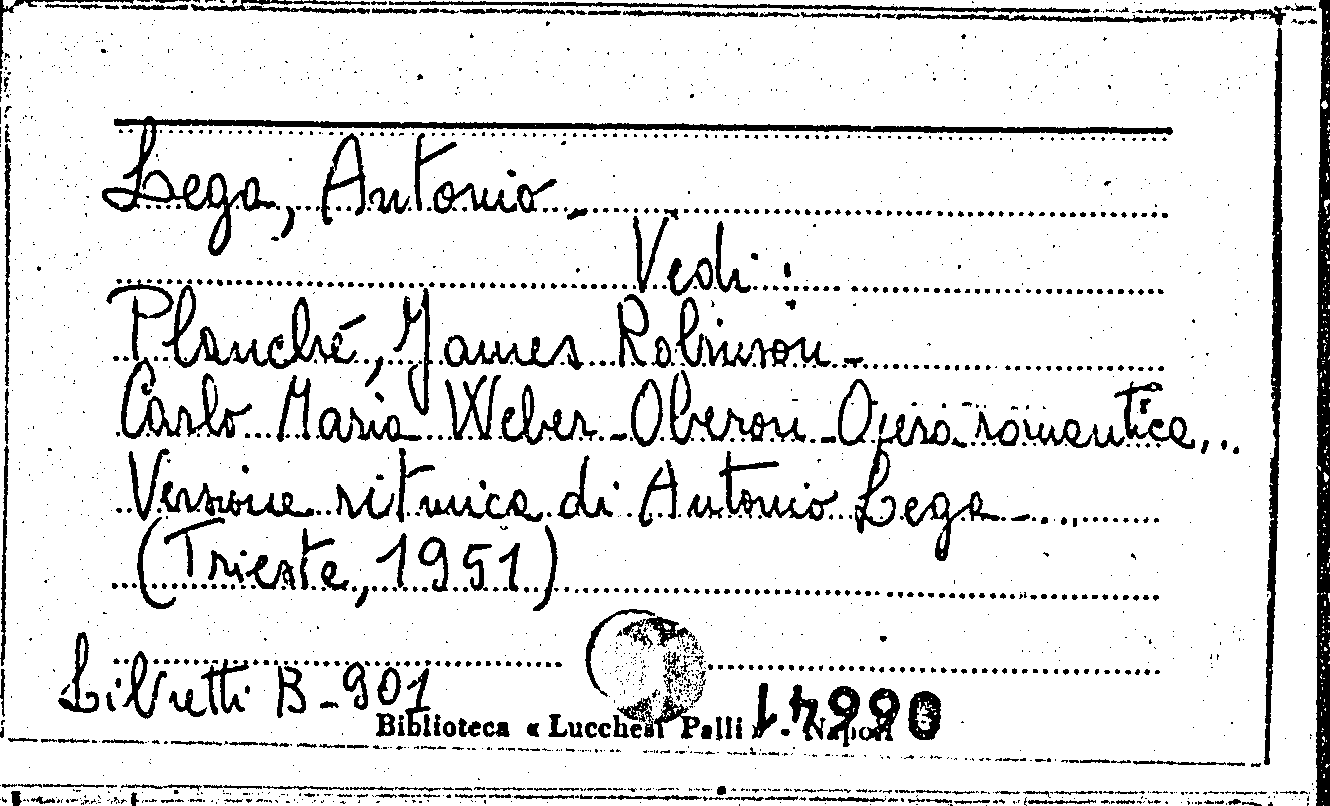 Lega, Antonio -
Vedi:
Planché, James Robinson -
Carlo Maria Weber - Oberon - Opera romantica,..
Versione ritmica di Antonio Lega - ....
(Trieste, 1951)
Libretti B-901
Biblioteca « Lucchesi Palli » - Napoli